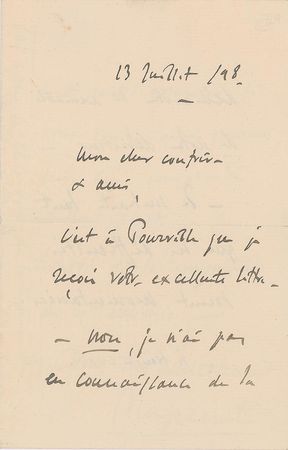 13 Juillet /98.
Mon cher confrère
& ami,
C'est à Pourville que je
reçois votre excellente lettre.
– Non, je n'ai pas
eu connaissance de la